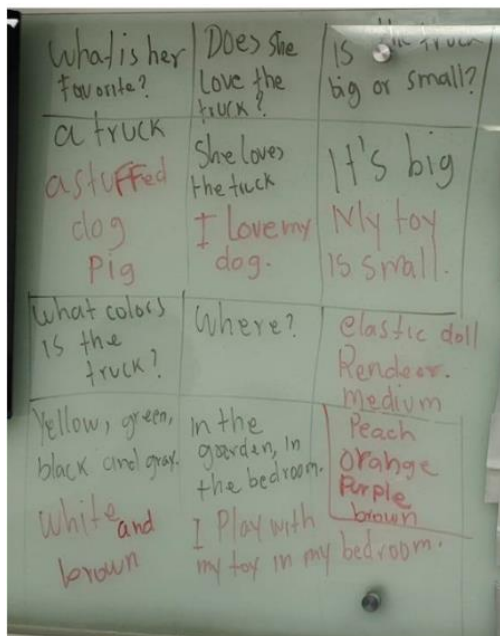 What is her
favorite?
Does she
love the
truck?
Is the truck
big or small?
a truck
a stuffed
dog
pig
She loves
the truck
I love my
dog.
It's big
My toy
is small.
What colors
is the
truck?
Where?
elastic doll
Rendeer.
medium
Yellow, green,
black and gray.
White and
brown
In the
gaarden, in
the bedroom.
I Play with
my toy in my bedroom.
Peach
orange
Purple
brown